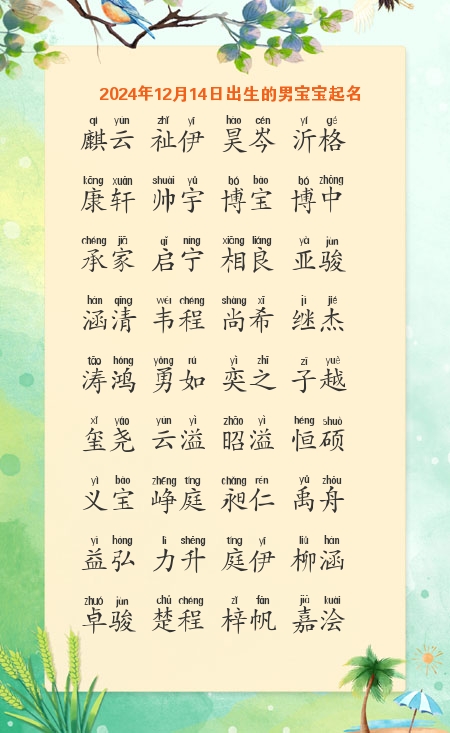 2024年12月14日出生的男宝宝起名
qí yún zhǐ yī hào cén yí gé
麒云 祉伊 昊岑 沂格
kāng xuān shuài yǔ bó bǎo bó zhōng
康轩 帅宇 博宝 博中
chéng jiā qǐ níng xiāng liáng yà jùn
承家 启宁 相良 亚骏
hán qīng wéi chéng shàng xī jì jié
涵清 韦程 尚希 继杰
tāo hóng yǒng rú yì zhī zǐ yuè
涛鸿 勇如 奕之 子越
xǐ yáo yún yì zhāo yì héng shuò
玺尧 云溢 昭溢 恒硕
yì bǎo zhēng tíng chǎng rén yǔ zhōu
义宝 峥庭 昶仁 禹舟
yì hóng lì shēng tíng yī liǔ hán
益弘 力升 庭伊 柳涵
zhuó jùn chǔ chéng zǐ fān jiā kuài
卓骏 楚程 梓帆 嘉浍